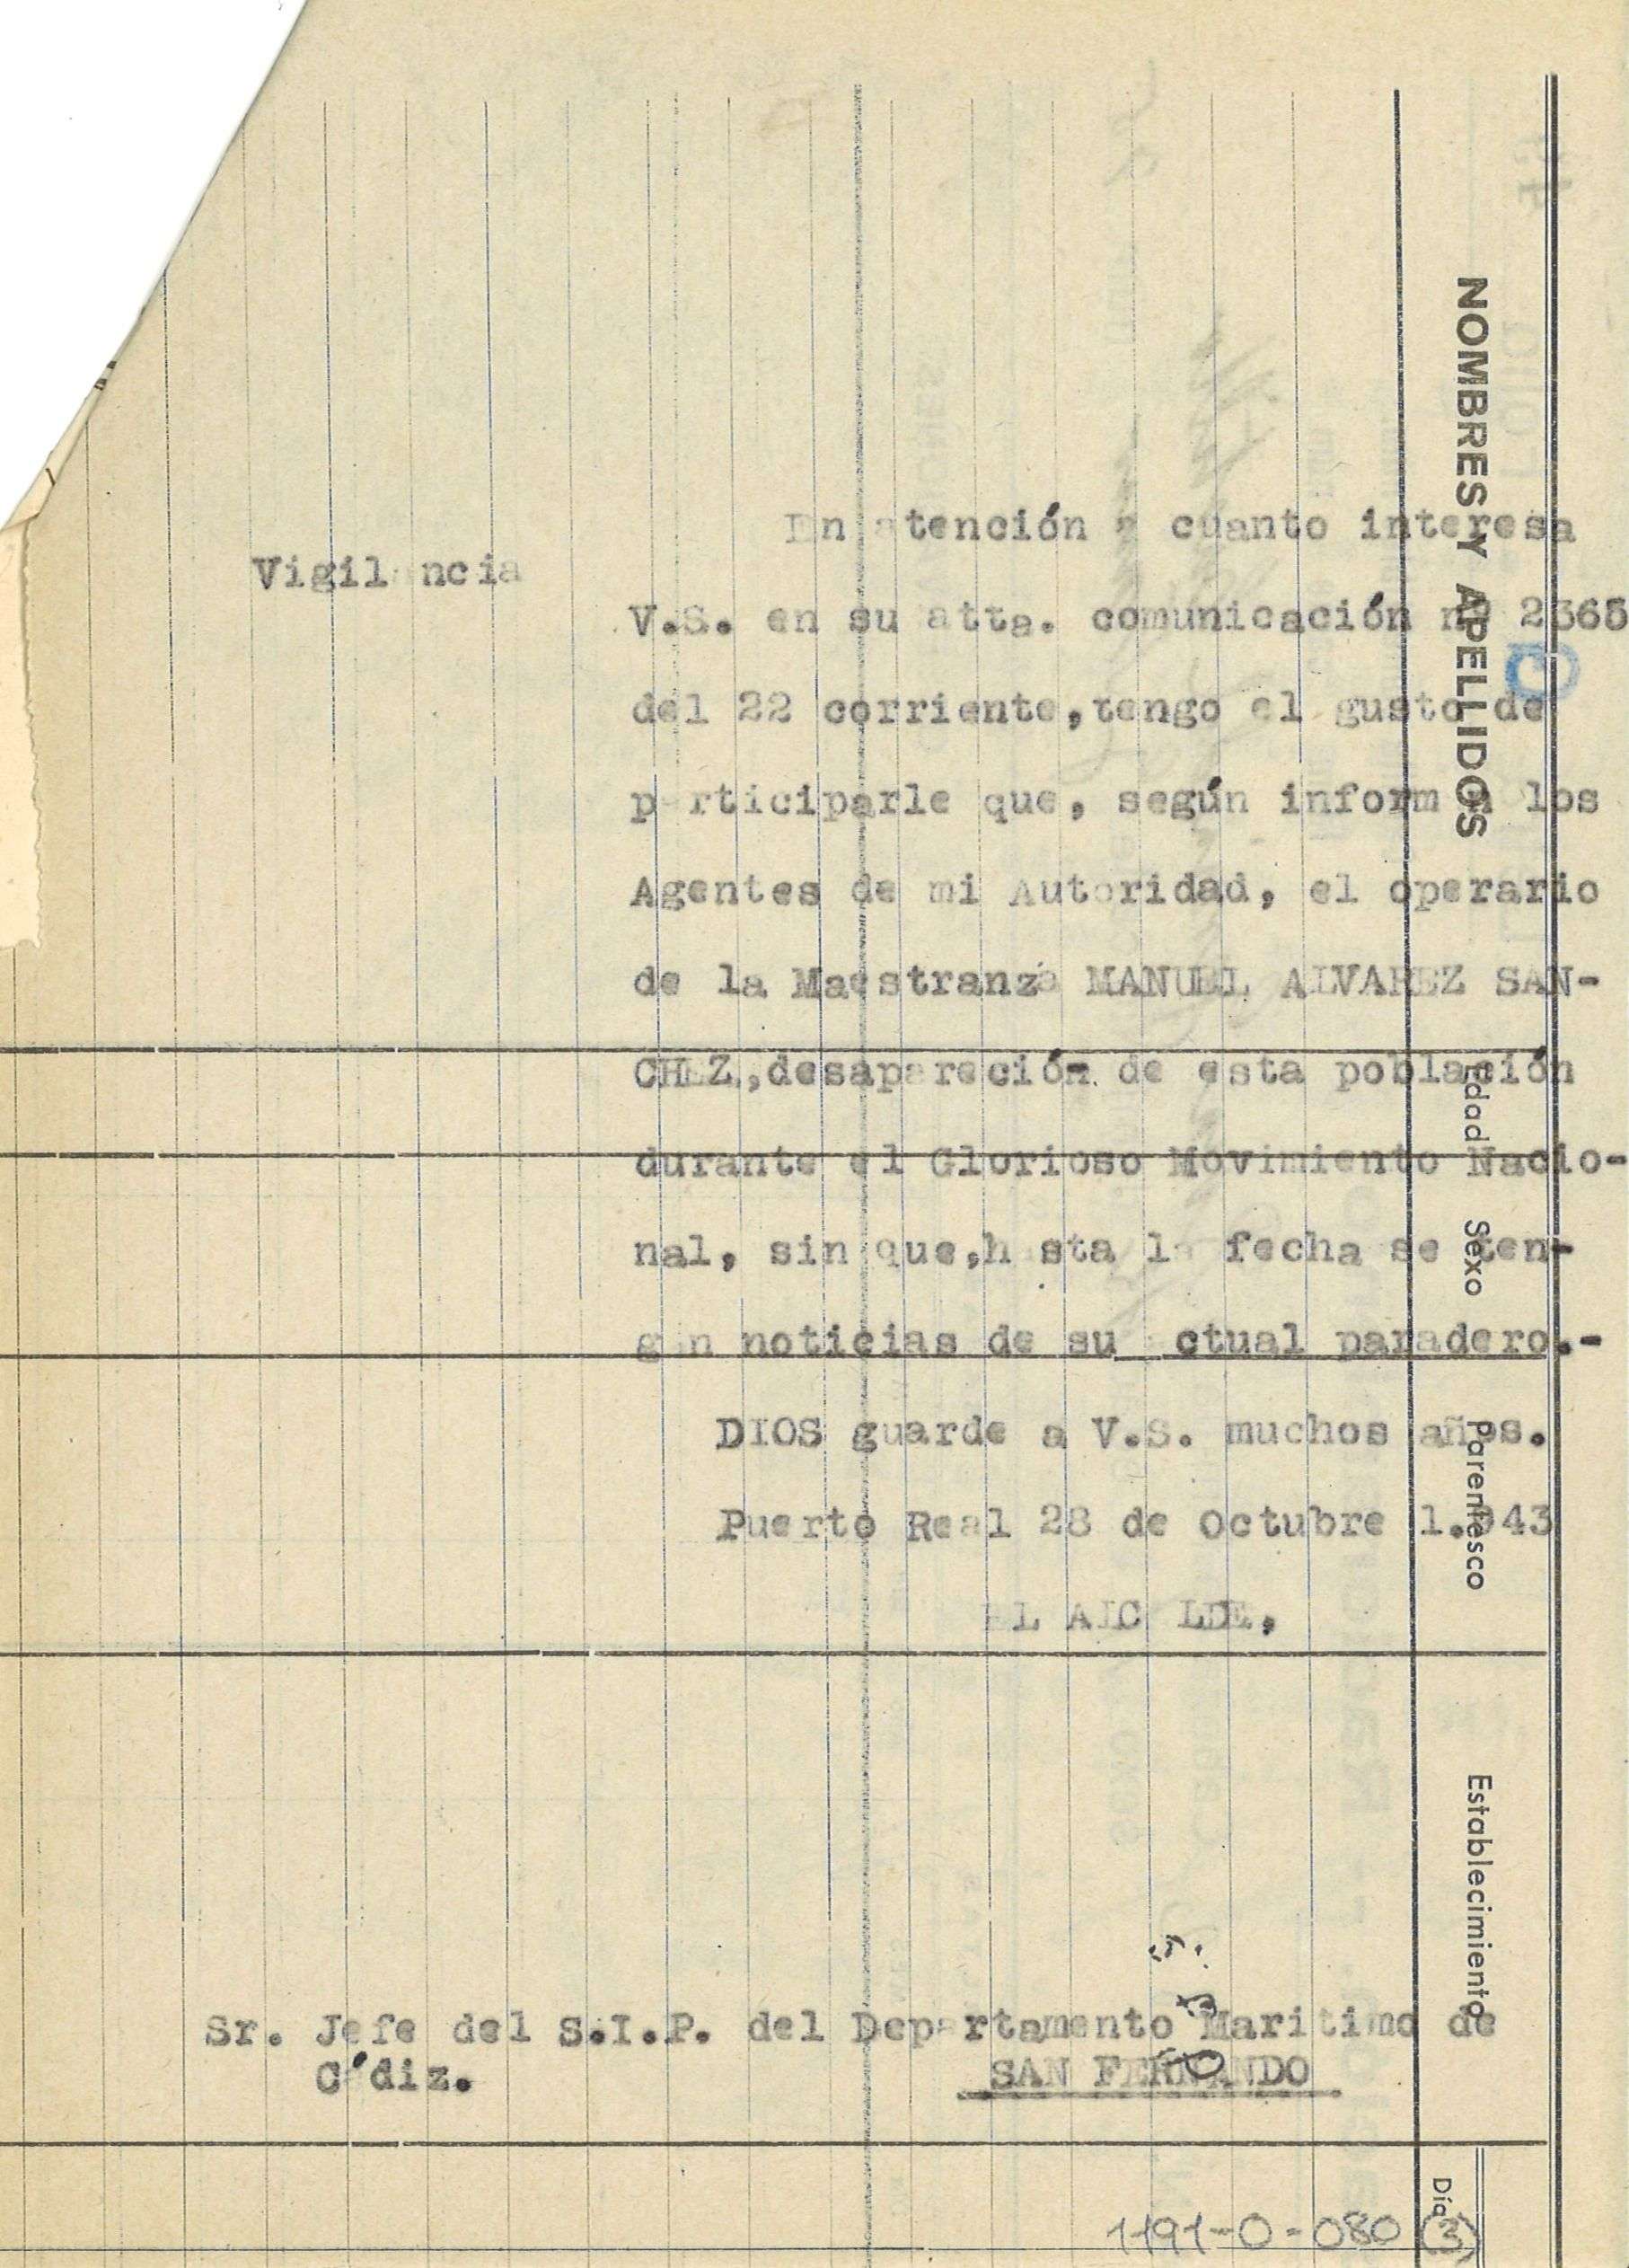 En atención a cuanto interesa
Vigilancia
V.S. en su atta. comunicación nº 2365
del 22 corriente,tengo el gusto de
participarle que, según informan los
Agentes de mi Autoridad, el operario
de la Maestranza MANUEL ALVAREZ SAN-
CHEZ,desapareción de esta población
durante el Glorioso Movimiento Nacio-
nal, sin que,hasta la fecha se ten-
gan noticias de su actual paradero.-
DIOS guarde a V.S. muchos años.
Puerto Real 28 de Octubre 1.943
EL ALCALDE,
Sr. Jefe del S.I.P. del Departamento Maritimo de
Cádiz.
SAN FERNANDO
NOMBRES Y APELLIDOS
Edad
Sexo
Parentesco
Establecimiento
Día
1191-0-080 (3)